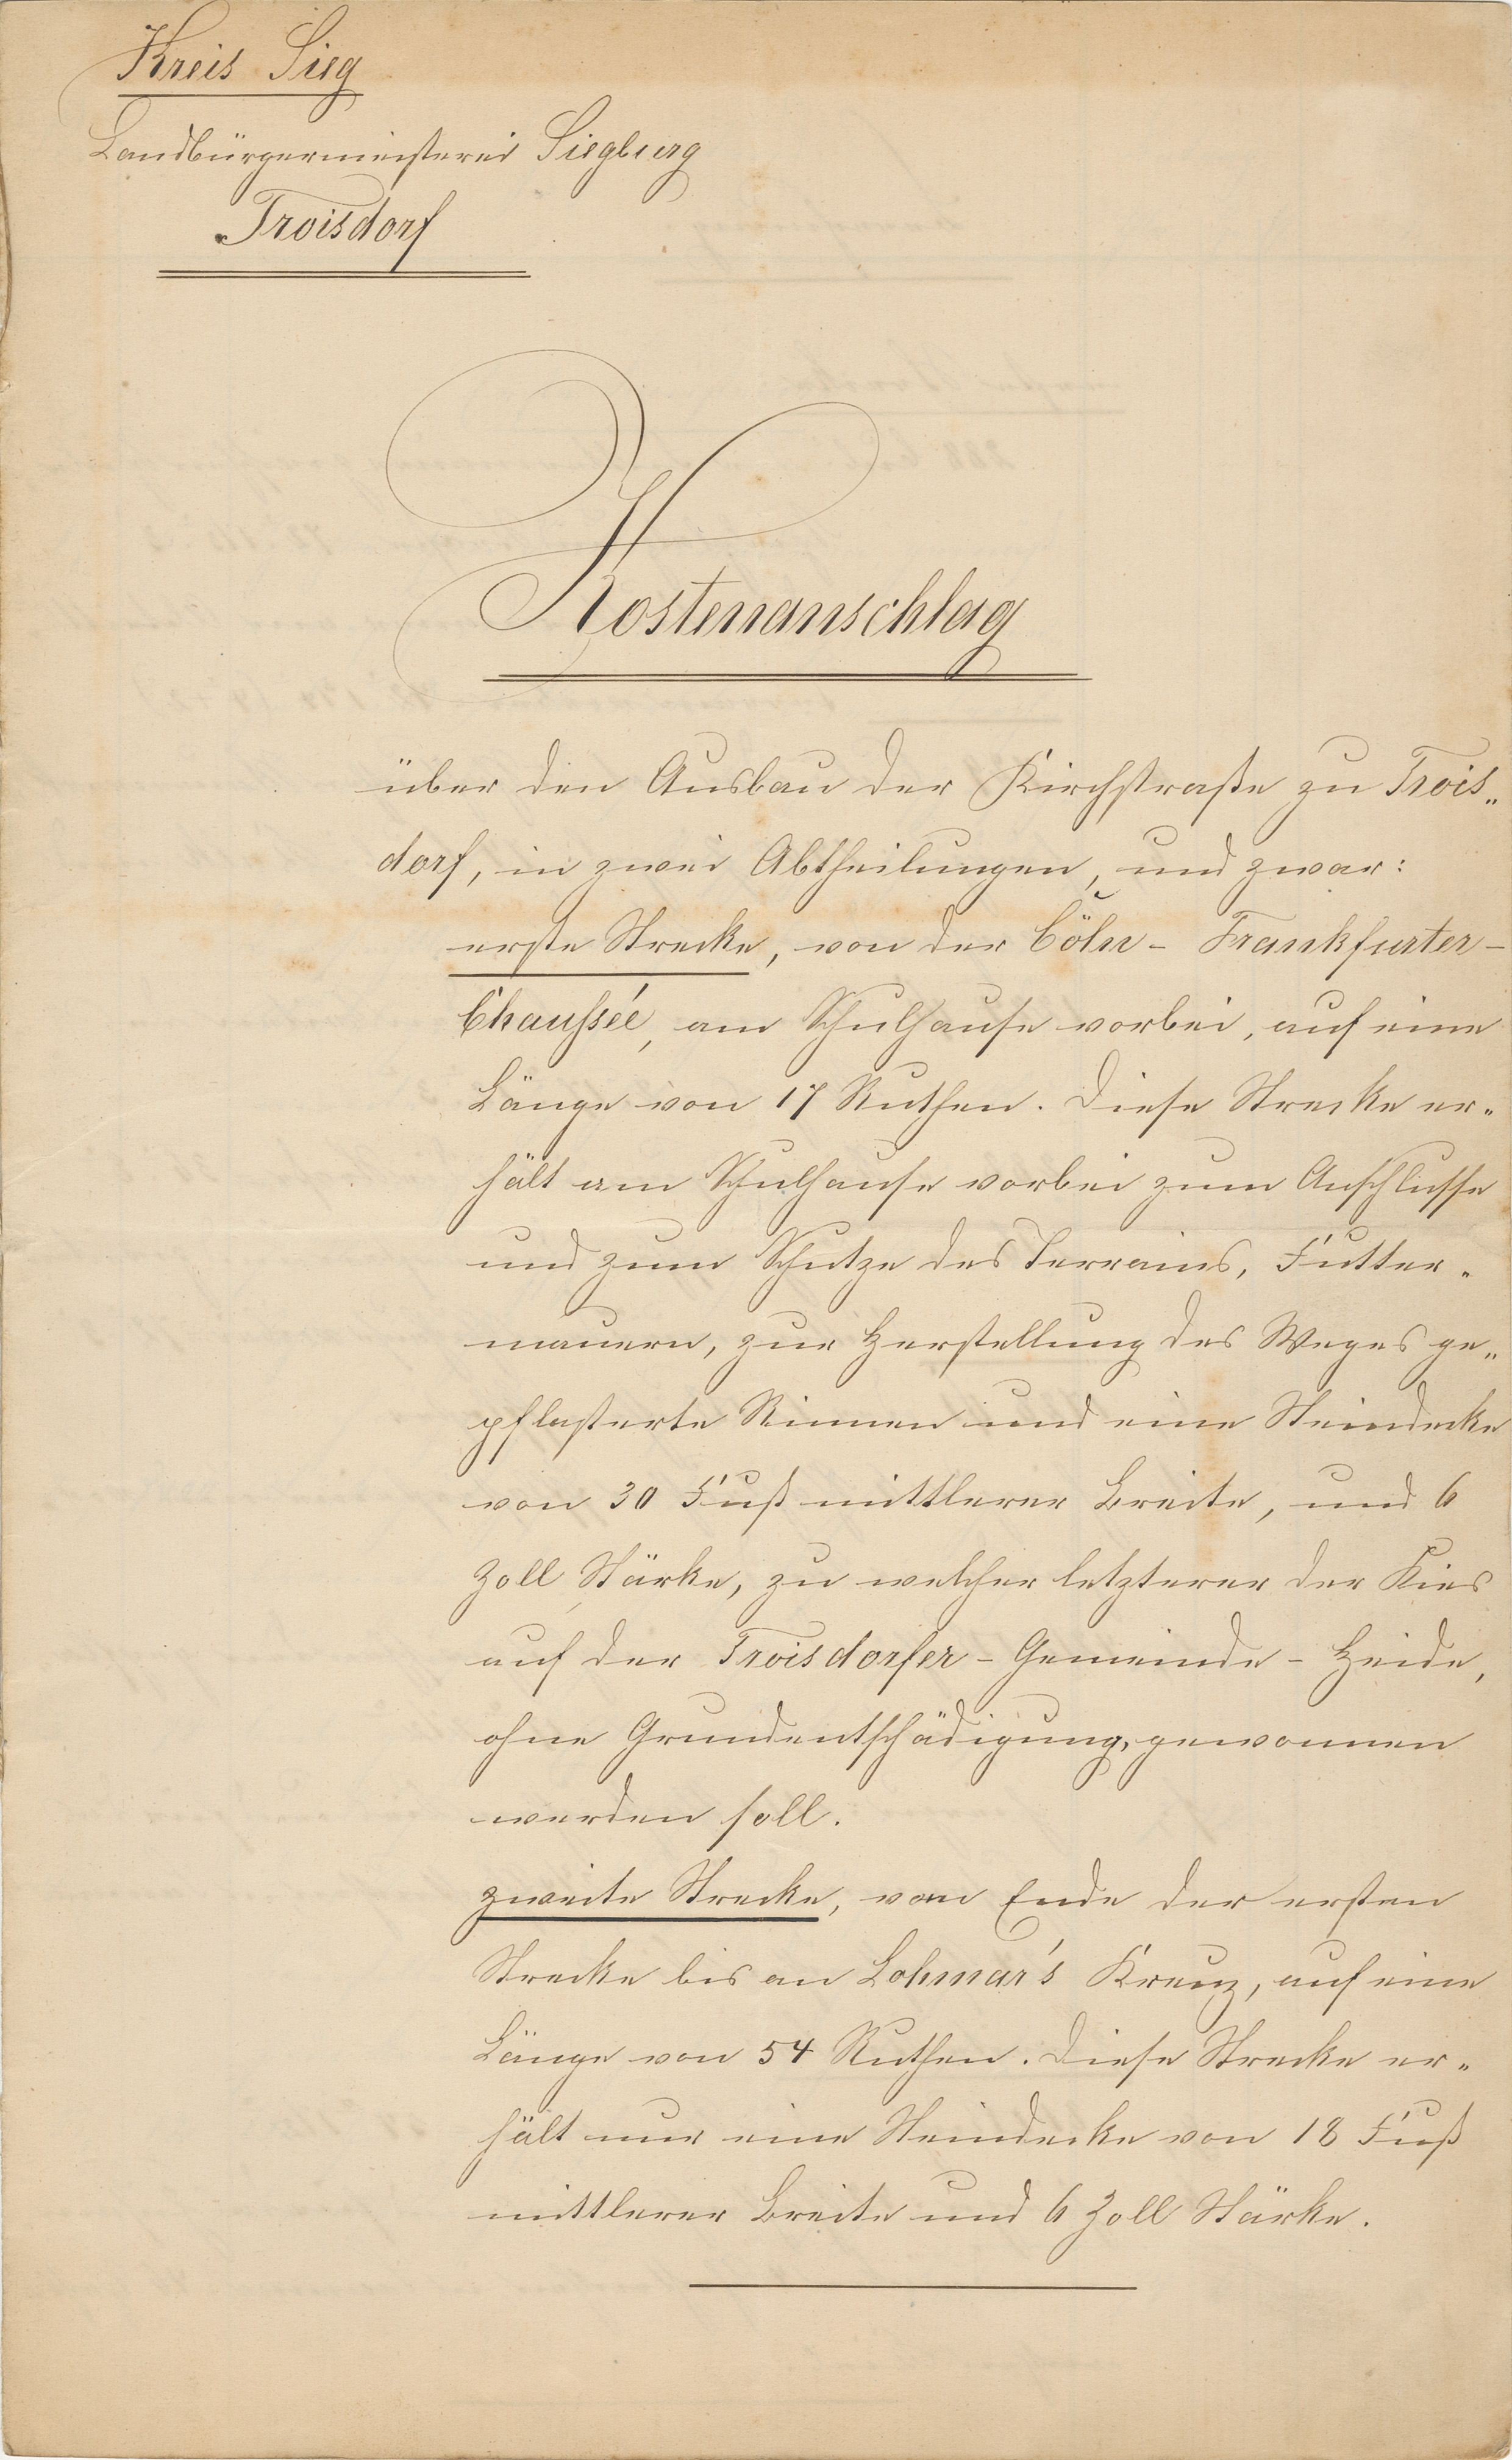 Kreis Sieg
Landbürgermeisterei Siegburg
Troisdorf
Kostenanschlag
über den Ausbau der Kirchstraße zu Trois„
dorf, in zwei Abtheilungen, und zwar:
erste Strecke, von der Cöln- Frankfurter-
Chausseé, am Schulhause vorbei, auf eine
Länge von 17 Ruthen. Diese Strecke er„
hält am Schulhause vorbei zum Anschlusse
und zum Schutze des Terrains, Futter„
mauern, zur Herstellung des Weges ge„
pflasterte Rinnen und eine Steindecke
von 30 Fuß mittlerer Breite, und 6
Zoll Stärke, zu welcher letzterer der Kies
auf der Troisdorfer-Gemeinde-Heide,
ohne Grundentschädigung, gewonnen
werden soll.
zweite Strecke, vom Ende der ersten
Strecke bis an Lohmar's Kreuz, auf eine
Länge von 54 Ruthen. Diese Strecke er„
hält nur eine Steindecke von 18 Fuß
mittlerer Breite und 6 Zoll Stärke.